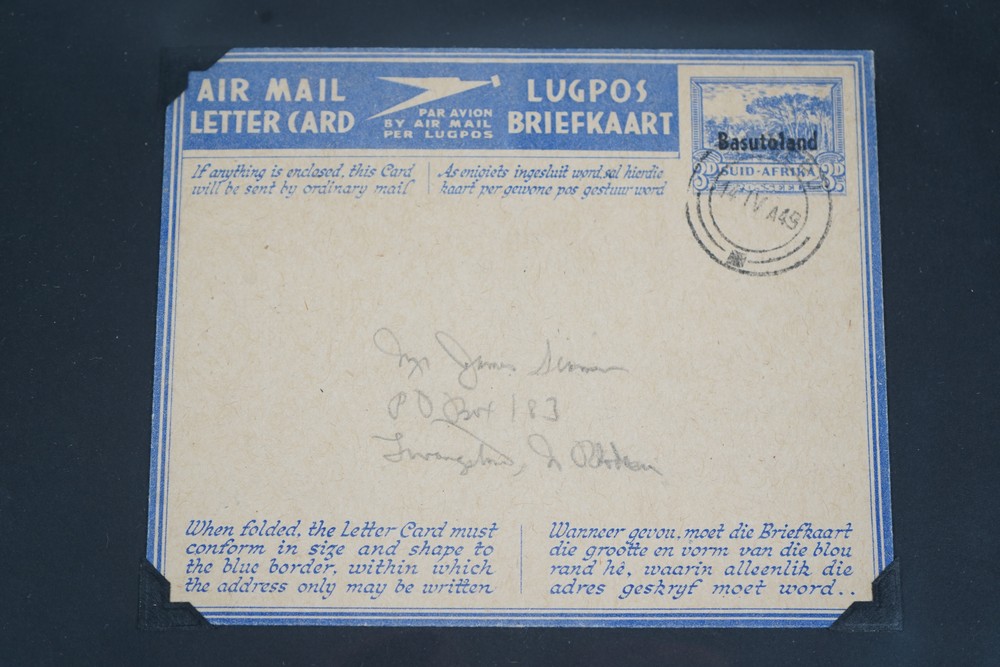 AIR MAIL
LETTER CARD
PAR AVION
BY AIR MAIL
PER LUGPOS
LUGPOS
BRIEFKAART
Basutoland
3D SUID-AFRIKA 3D
POSSEEL
14 IV A49
If anything is enclosed, this Card
will be sent by ordinary mail
As enigiets ingesluit word, sal hierdie
kaart per gewone pos gestuur word
Mr James
P O Box 183
When folded, the Letter Card must
conform in size and shape to
the blue border, within which
the address only may be written
Wanneer gevou, moet die Briefkaart
die grootte en vorm van die blou
rand hê, waarin alleenlik die
adres geskryf moet word..